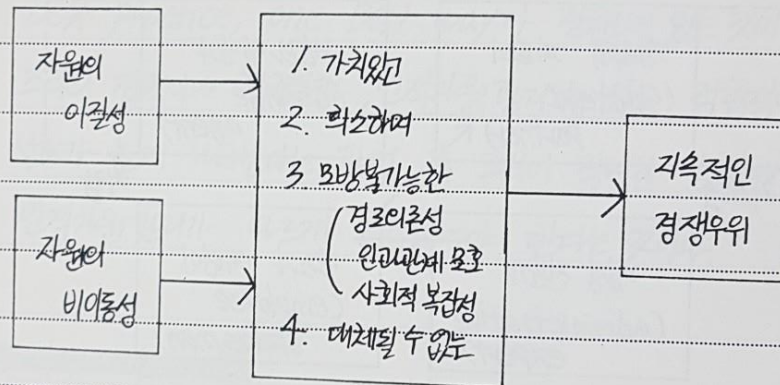 자원의
이질성
자원의
비이동성
1. 가치있고
2. 희소하며
3 모방불가능한
경로의존성
인과관계 모호
사회적 복잡성
4. 대체될 수 없는
지속적인
경쟁우위